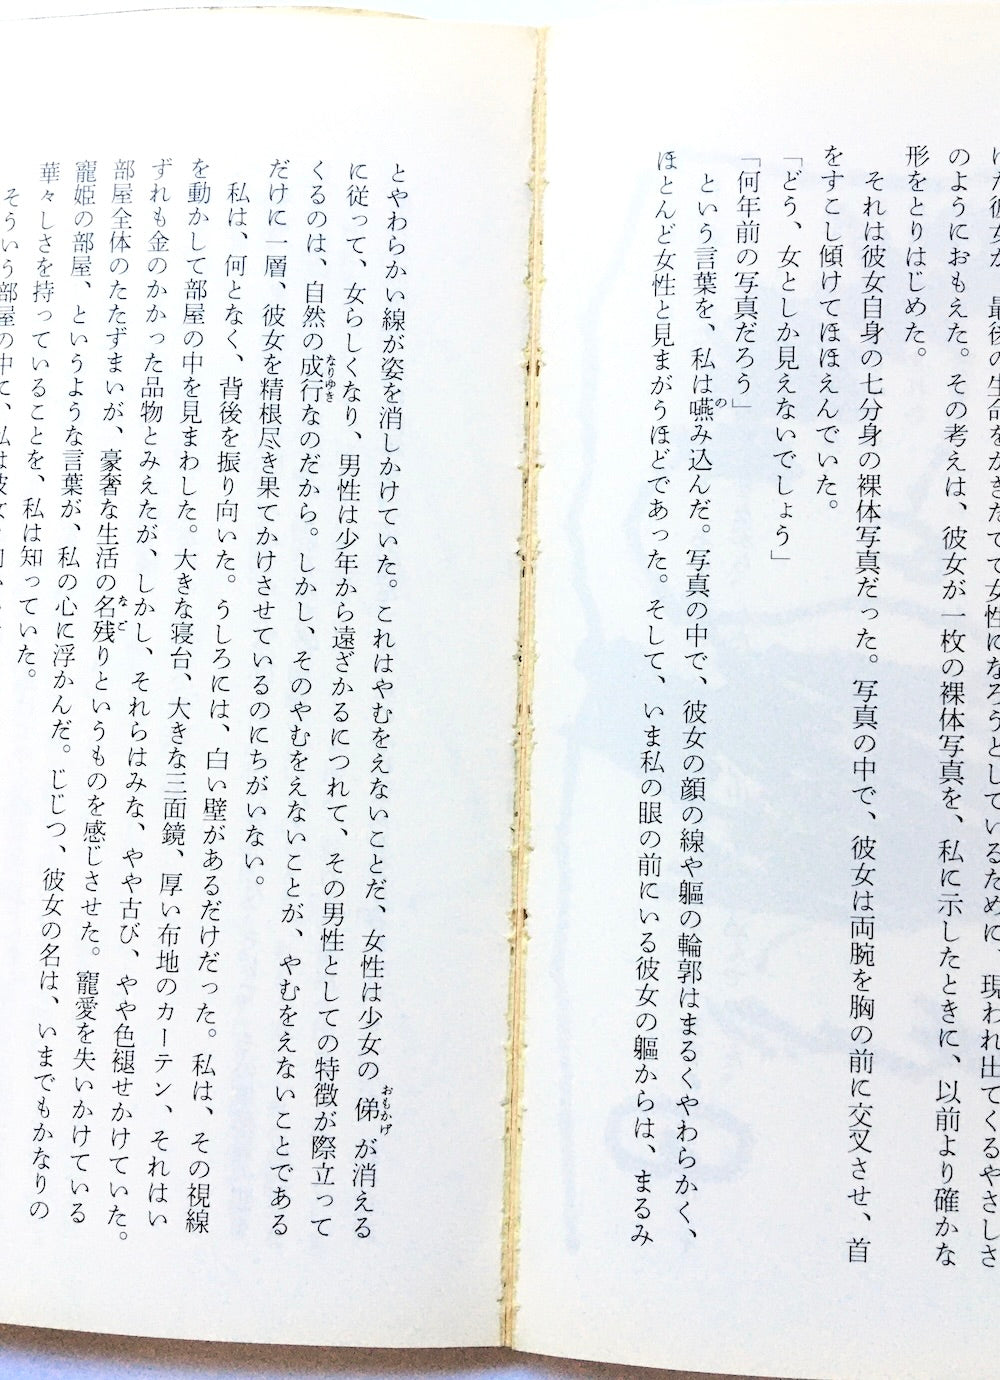 た彼女が、最後の生命をかきたてて女性になろうとしているために、現われ出てくるやさしさ
のようにおもえた。その考えは、彼女が一枚の裸体写真を、私に示したときに、以前より確かな
形をとりはじめた。
それは彼女自身の七分身の裸体写真だった。写真の中で、彼女は両腕を胸の前に交叉させ、首
をすこし傾けてほほえんでいた。
「どう、女としか見えないでしょう」
「何年前の写真だろう」
という言葉を、私は嚥み込んだ。写真の中で、彼女の顔の線や軀の輪郭はまるくやわらかく、
ほとんど女性と見まがうほどであった。そして、いま私の眼の前にいる彼女の軀からは、まるみ
とやわらかい線が姿を消しかけていた。これはやむをえないことだ、女性は少女の俤が消える
に従って、女らしくなり、男性は少年から遠ざかるにつれて、その男性としての特徴が際立って
くるのは、自然の成行なのだから。しかし、そのやむをえないことが、やむをえないことである
だけに一層、彼女を精根尽き果てかけさせているのにちがいない。
私は、何となく、背後を振り向いた。うしろには、白い壁があるだけだった。私は、その視線
を動かして部屋の中を見まわした。大きな寝台、大きな三面鏡、厚い布地のカーテン、それはい
ずれも金のかかった品物とみえたが、しかし、それらはみな、やや古び、やや色褪せかけていた。
部屋全体のたたずまいが、豪奢な生活の名残りというものを感じさせた。寵愛を失いかけている
寵姫の部屋、というような言葉が、私の心に浮かんだ。じじつ、彼女の名は、いまでもかなりの
華々しさを持っていることを、私は知っていた。
そういう部屋の中で、私は彼女と